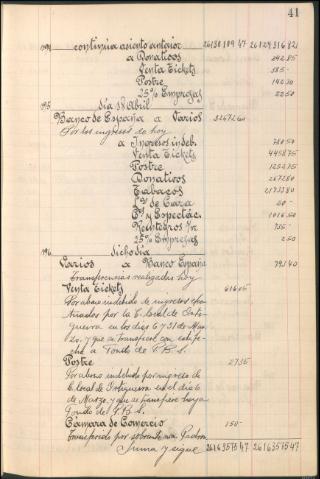 41
continúa asiento anterior 26130189 47 26129316 82
a Donativos 242.85
Venta Tickets 385.-
Postre 142.50
25% Empresas 22.50
195 día 18 Abril
Banco de España a Varios
Por los ingresos de hoy
a Ingresos indeb.
Venta Tickets 4458.75
Postre
Donativos 2672.80
Tabacos
de Caza
y Espectác. 1016.50
Reintegros
25% Empresas 2.50
196 dicho dia
Varios a Banco España 791.40
Transferencias realizadas hoy
Venta Tickets 616.05
Por abono indebido de ingresos efec-
tuados por la E. local de Orti-
gueira en los días 6 y 31 de Mar-
zo, y que se transfieren con esta fe-
cha a Fondo de F. B. S.
Postre 27.35
Por abono indebido por ingreso de
E. local de Ortigueira en el día 6
de Marzo, y que se transfiere hoy a
Fondo de F. B. S.
Cámara de Comercio 150.-
Transferido por
Suma y sigue 26163575 47 26163575 47